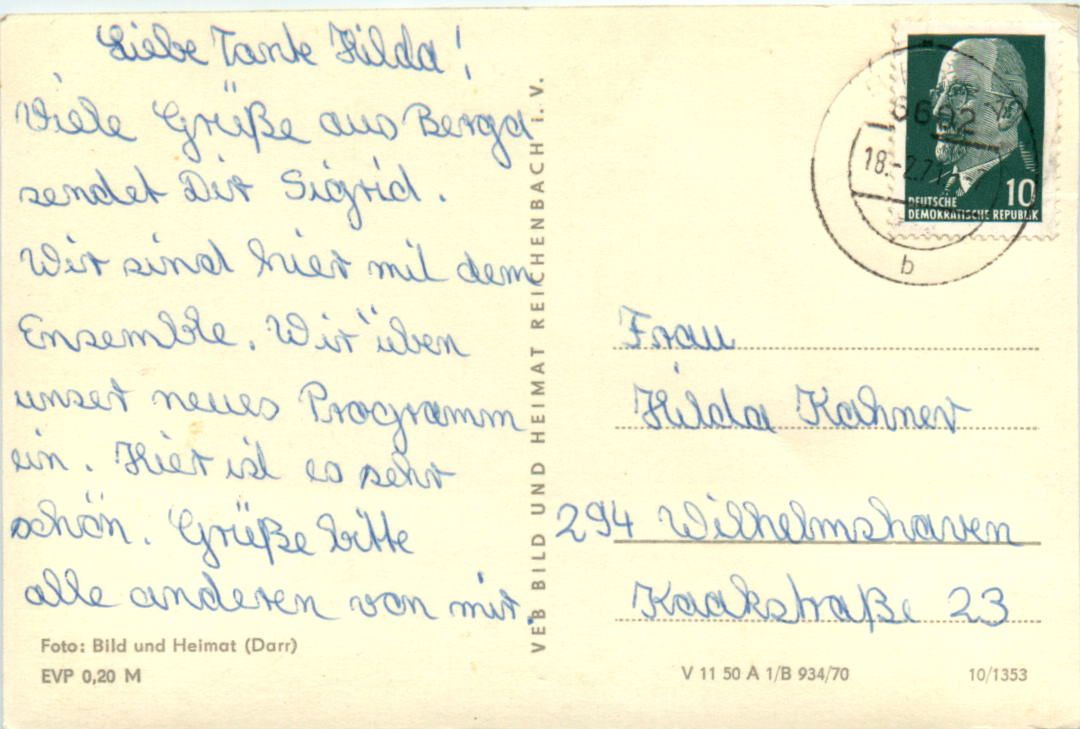 Liebe Tante Hilda!
Viele Grüße aus Berga
sendet Dir Sigrid.
Wir sind hier mit dem
Ensemble. Wir üben
unser neues Programm
ein. Hier ist es sehr
schön. Grüße bitte
alle anderen von mir.
Foto: Bild und Heimat (Darr)
EVP 0,20 M
VEB BILD UND HEIMAT REICHENBACH i. V.
6602
18.-2.71
b
10
DEUTSCHE
DEMOKRATISCHE REPUBLIK
Frau
Hilda Kahner
294 Wilhelmshaven
Kaakstraße 23
V 11 50 A 1/B 934/70
10/1353